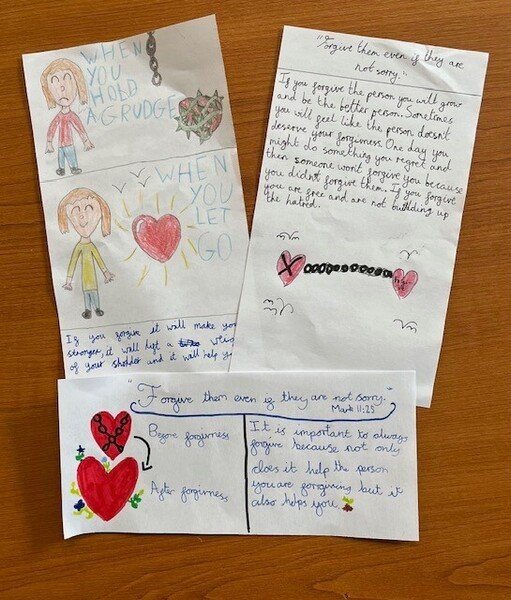 WHEN
YOU
HOLD
A GRUDGE
WHEN
YOU
LET
GO
If you forgive it will make you
stronger, it will lift a
of your sholder and it will help
"Forgive them even if they are
not sorry."
If you forgive the person you will grow
and be the better person. Sometimes
you will feel like the person doesn't
deserve your forgivness. One day you
might do something you regret and
then someone wont forgive you because
you didn't forgive them. If you forgive
you are free and are not building up
the hatred.
"Forgive them even if they are not sorry."
Mark 11:25
Before forgivness
After forgivness
It is important to always
forgive because not only
does it help the person
you are forrgiving but it
also helps you.